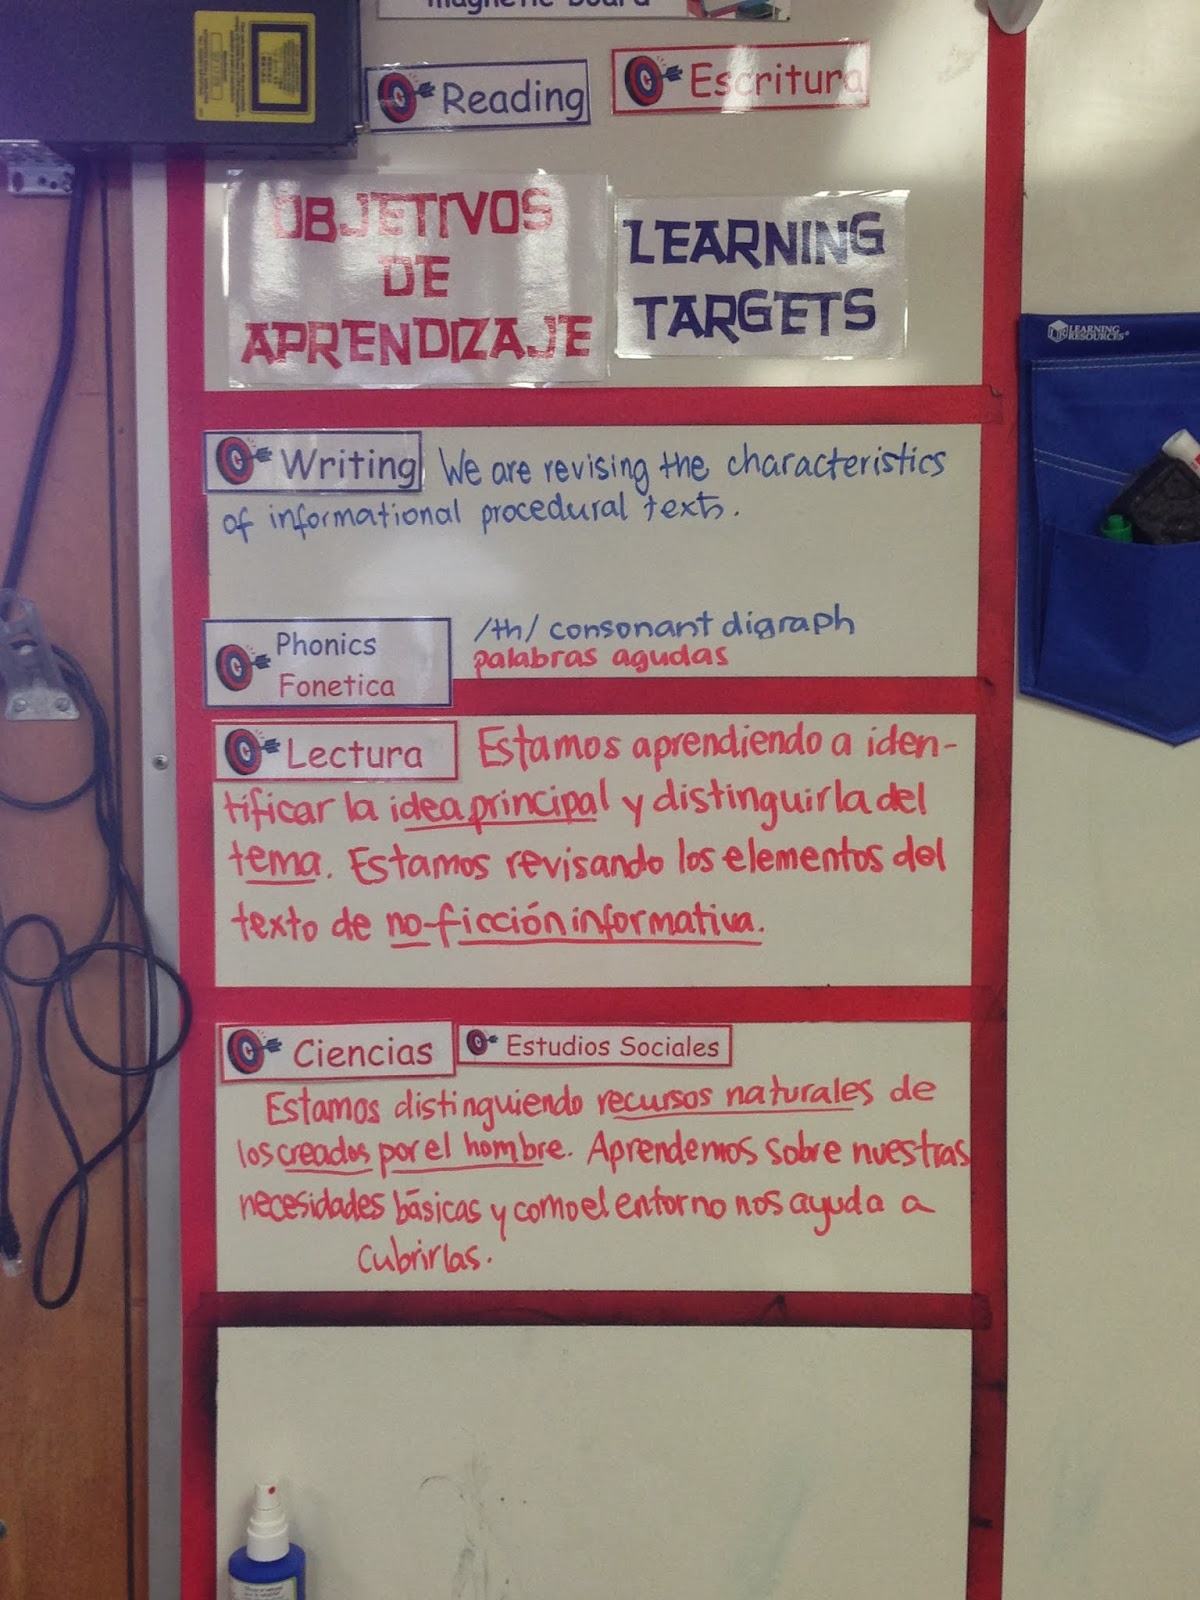 magnetic board
Reading
Escritura
OBJETIVOS
DE
APRENDIZAJE
LEARNING
TARGETS
LEARNING
RESOURCES®
Writing We are revising the characteristics
of informational procedural texts.
Phonics
Fonetica
/th/ consonant digraph
palabras agudas
Lectura Estamos aprendiendo a iden-
tificar la idea principal y distinguirla del
tema. Estamos revisando los elementos del
texto de no-ficción informativa.
Ciencias
Estudios Sociales
Estamos distinguiendo recursos naturales de
los creados por el hombre. Aprendemos sobre nuestras
necesidades básicas y como el entorno nos ayuda a
cubrirlas.